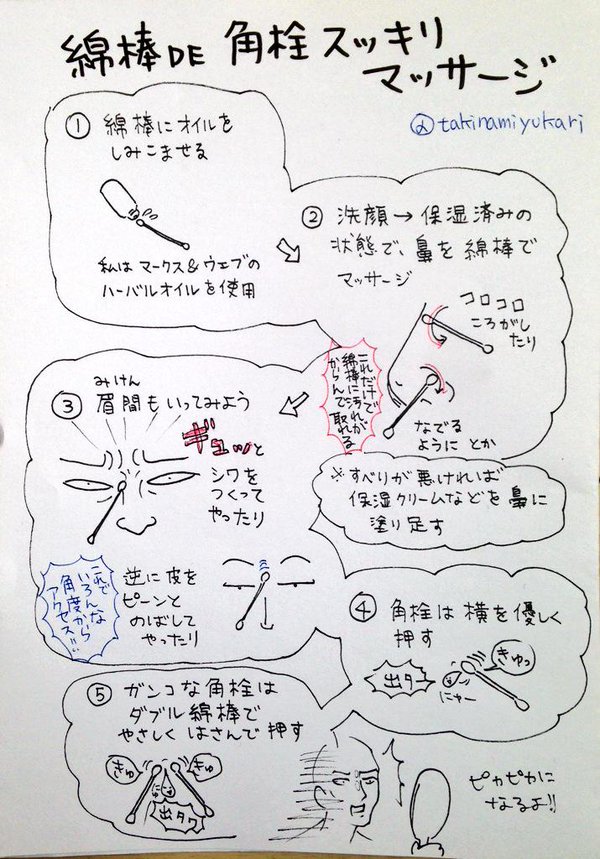 綿棒DE 角栓スッキリ
マッサージ
@takinamiyukari
① 綿棒にオイルを
しみこませる
私はマークス&ウェブの
ハーバルオイルを使用
② 洗顔→保湿済みの
状態で、鼻を綿棒で
マッサージ
コロコロ
ころがし
たり
なでる
ように とか
これだけで
綿棒に汚れが
からんで取れる
※すべりが悪ければ
保湿クリームなどを鼻に
塗り足す
みけん
③ 眉間もいってみよう
ギュッと
シワを
つくって
やったり
逆に皮を
ピーンと
のばして
やったり
これで
いろんな
角度から
アクセス!!
④ 角栓は横を優しく
押す
きゅっ
出タ
にゅー
⑤ ガンコな角栓は
ダブル綿棒で
やさしくはさんで押す
きゅ
きゅ
にゅ
出タワ
ピカピカに
なるよ!!